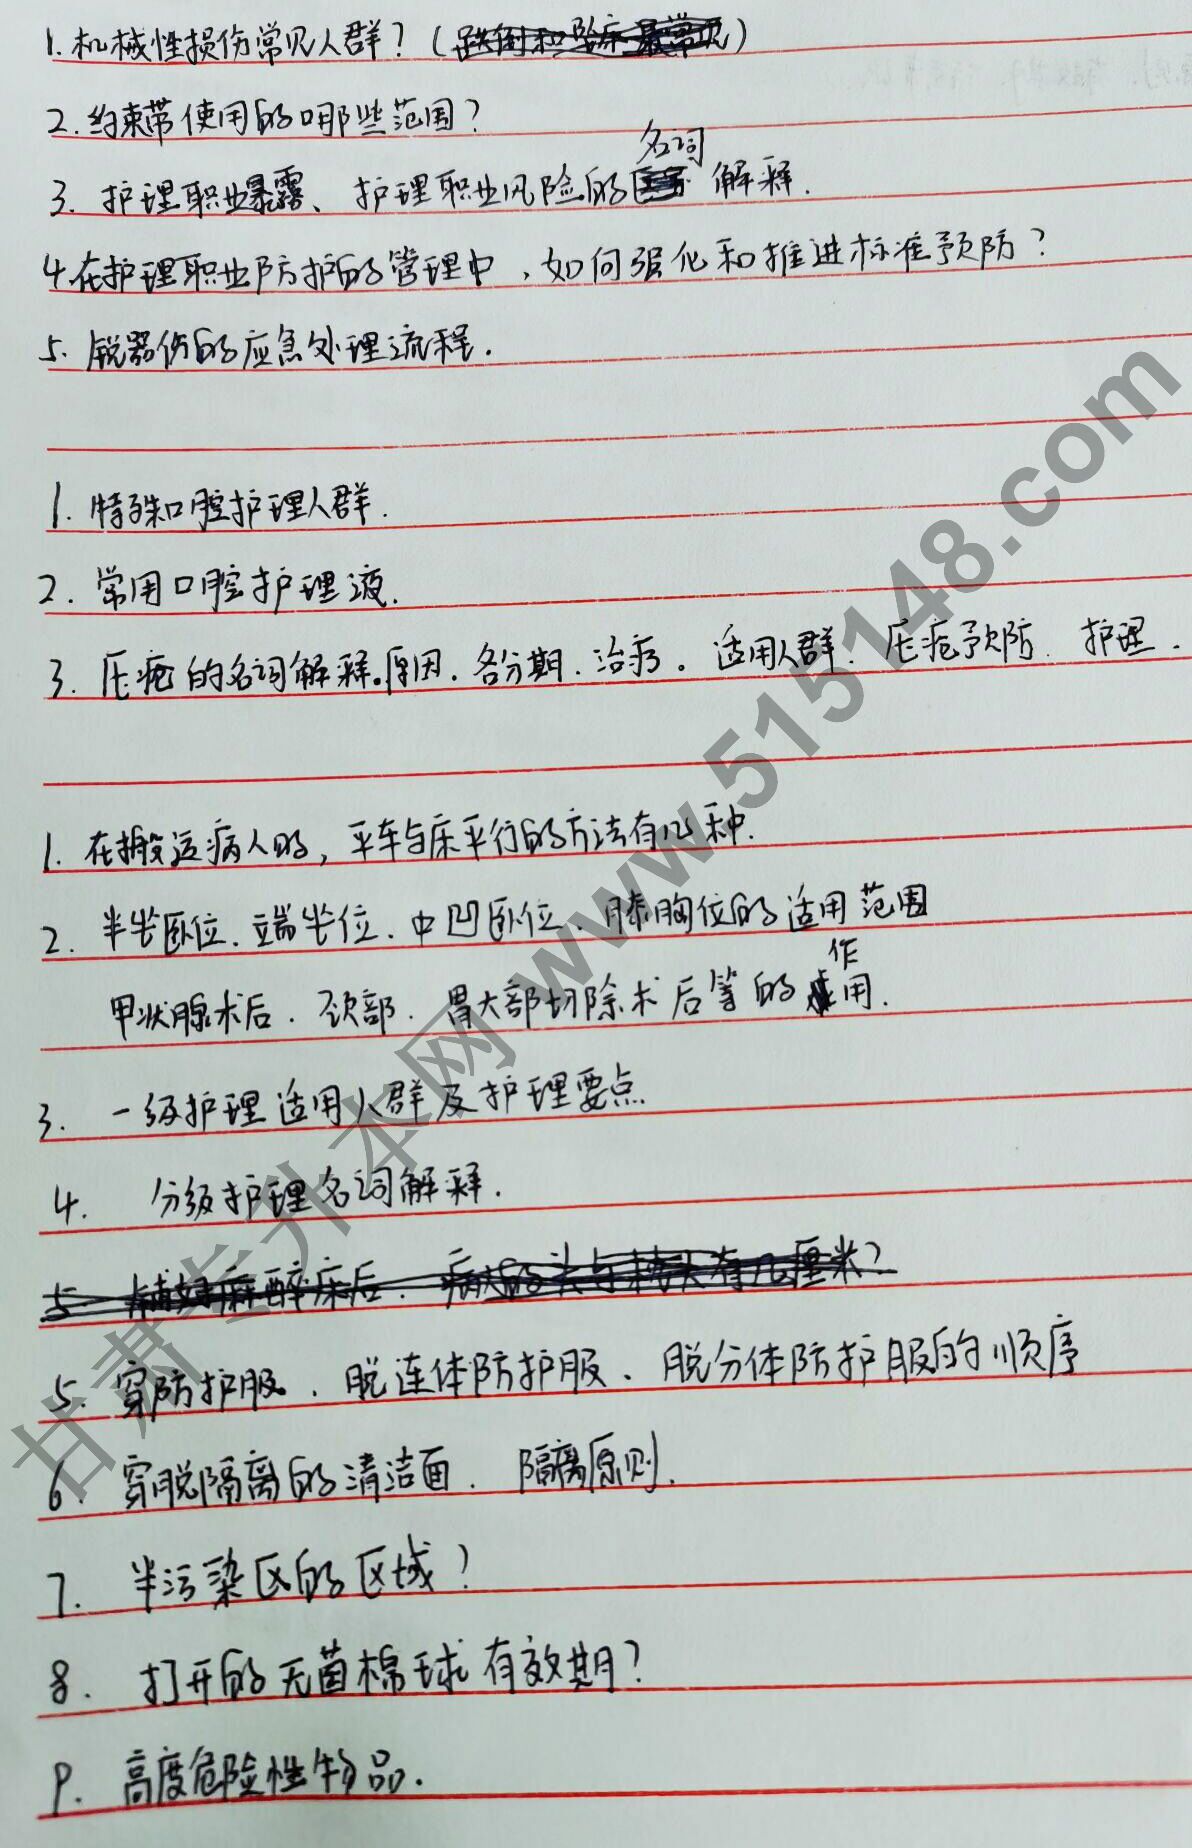 1. 机械性损伤常见人群？（跌倒和坠床最常见）
2. 约束带使用的哪些范围？
名词
3. 护理职业暴露、护理职业风险的 解释.
4. 在护理职业防护的管理中，如何强化和推进标准预防？
5. 锐器伤的应急处理流程.
1. 特殊口腔护理人群.
2. 常用口腔护理液.
3. 压疮的名词解释。原因. 各分期. 治疗。适用人群. 压疮预防. 护理.
1. 在搬运病人时，平车与床平行的方法有几种.
2. 半坐卧位. 端坐位. 中凹卧位. 膝胸位的适用范围
作
甲状腺术后. 颈部. 胃大部切除术后等的 用.
3. 一级护理适用人群及护理要点
4. 分级护理名词解释.
5. 麻醉床后. 病人的头与床头有几厘米？
5. 穿防护服. 脱连体防护服. 脱分体防护服的顺序
6. 穿脱隔离的清洁面. 隔离原则.
7. 半污染区的区域？
8. 打开的无菌棉球有效期？
9. 高度危险性物品.
甘肃专升本网 www.515148.com